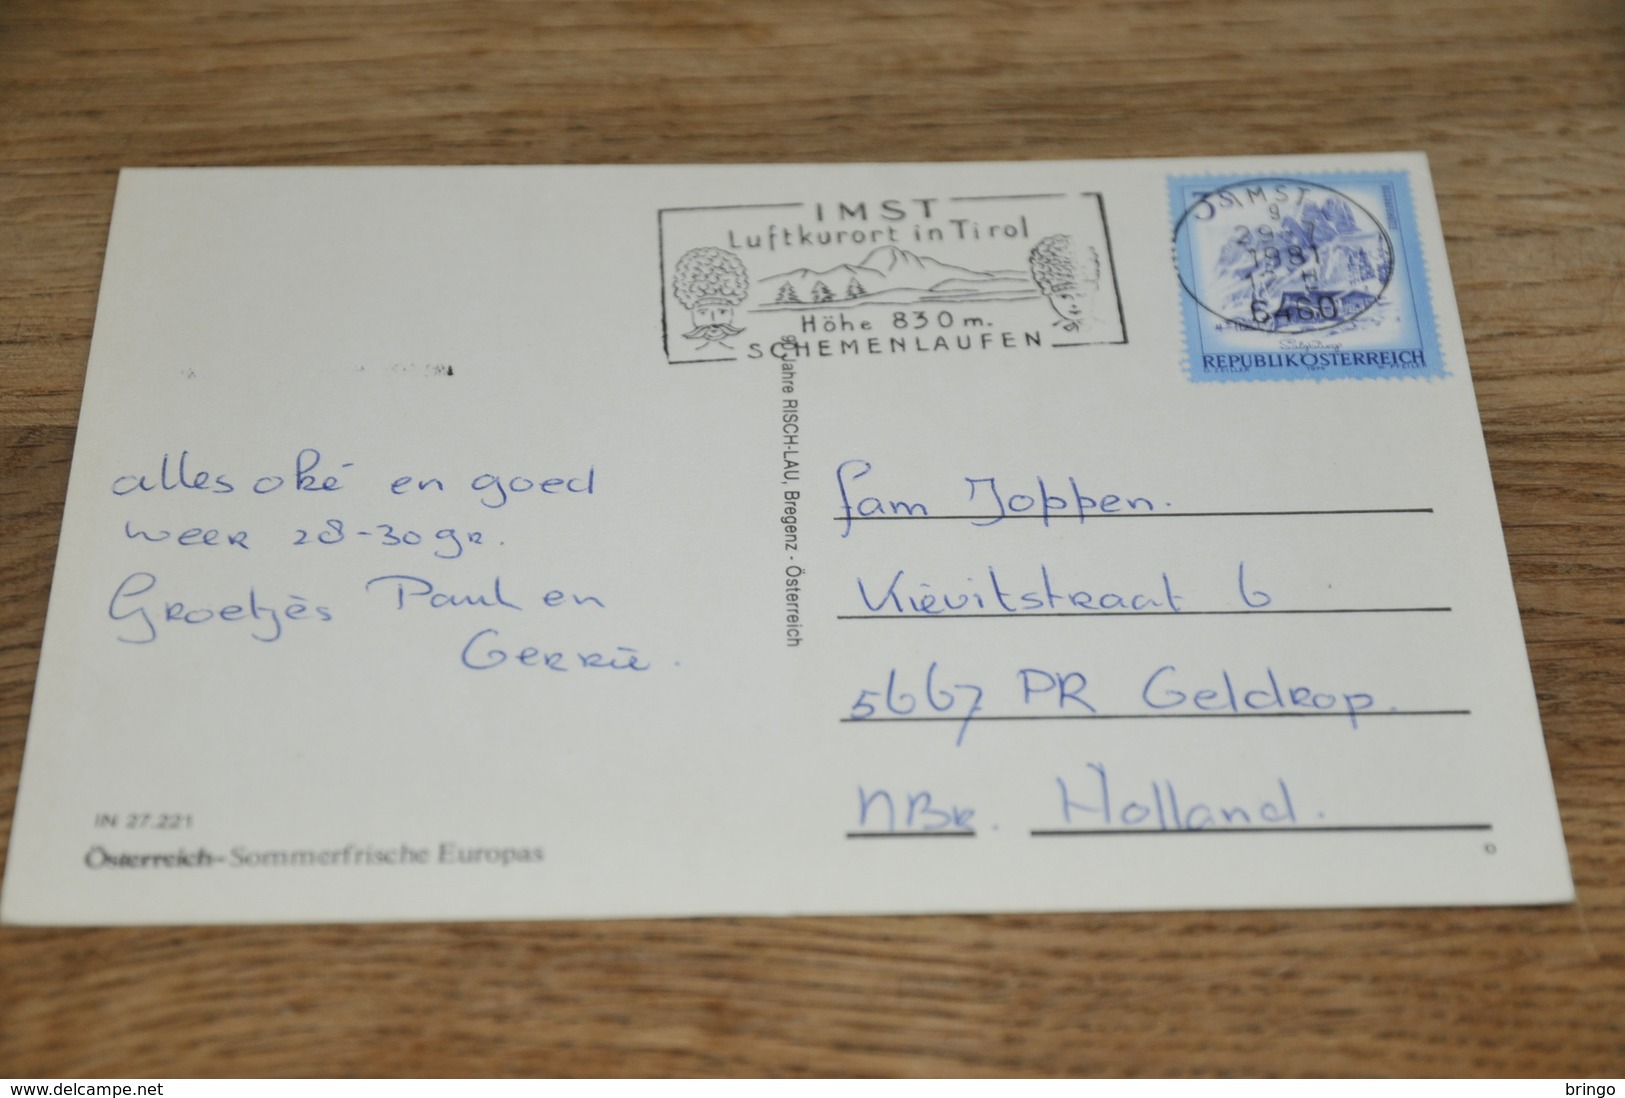 IMST
Luftkurort in Tirol
Höhe 830 m.
SCHEMENLAUFEN
3 S
IMST
9
29.-7
1981
6460
REPUBLIK ÖSTERREICH
90 Jahre RISCH-LAU, Bregenz - Österreich
alles oké en goed
weer 28-30 gr.
Groetjes Paul en
Gerrie.
fam Joppen.
Kievitstraat 6
5667 PR Geldrop.
NBr. Holland.
IN 27.221
Österreich - Sommerfrische Europas
www.delcampe.net
bringo